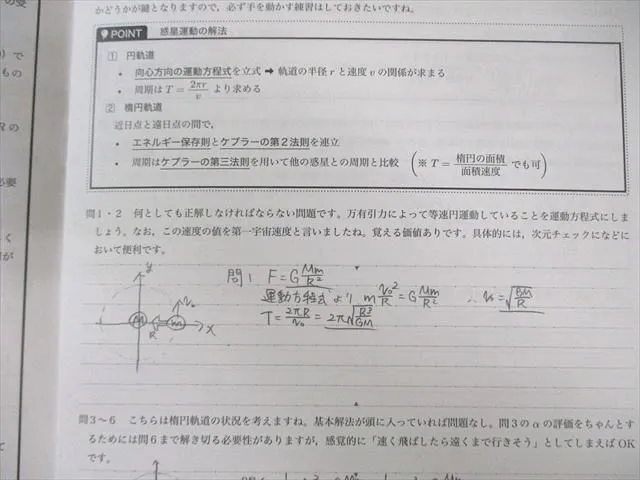 かどうかが鍵となりますので，必ず手を動かす練習はしておきたいですね。
POINT 惑星運動の解法
1 円軌道
• 向心方向の運動方程式を立式 ➡ 軌道の半径 r と速度 v の関係が求まる
• 周期は T = 2πr/v より求める
2 楕円軌道
近日点と遠日点の間で，
• エネルギー保存則とケプラーの第2法則を連立
• 周期はケプラーの第三法則を用いて他の惑星との周期と比較 (※ T = 楕円の面積/面積速度 でも可)
問1・2 何としても正解しなければならない問題です。万有引力によって等速円運動していることを運動方程式にしま
しょう。なお，この速度の値を第一宇宙速度と言いましたね。覚える価値ありです。具体的には，次元チェックになどに
おいて便利です。
問1 F = G Mm/R²
運動方程式より m v₀²/R = G Mm/R² ∴ v₀ = √(GM/R)
T = 2πR/v₀ = 2π√(R³/GM)
y
v₀
M
m
R
x
問3～6 こちらは楕円軌道の状況を考えますね。基本解法が頭に入っていれば問題なし。問3のαの評価をちゃんとす
るためには問6まで解き切る必要性がありますが，感覚的に「速く飛ばしたら遠くまで行きそう」としてしまえばOK
です。